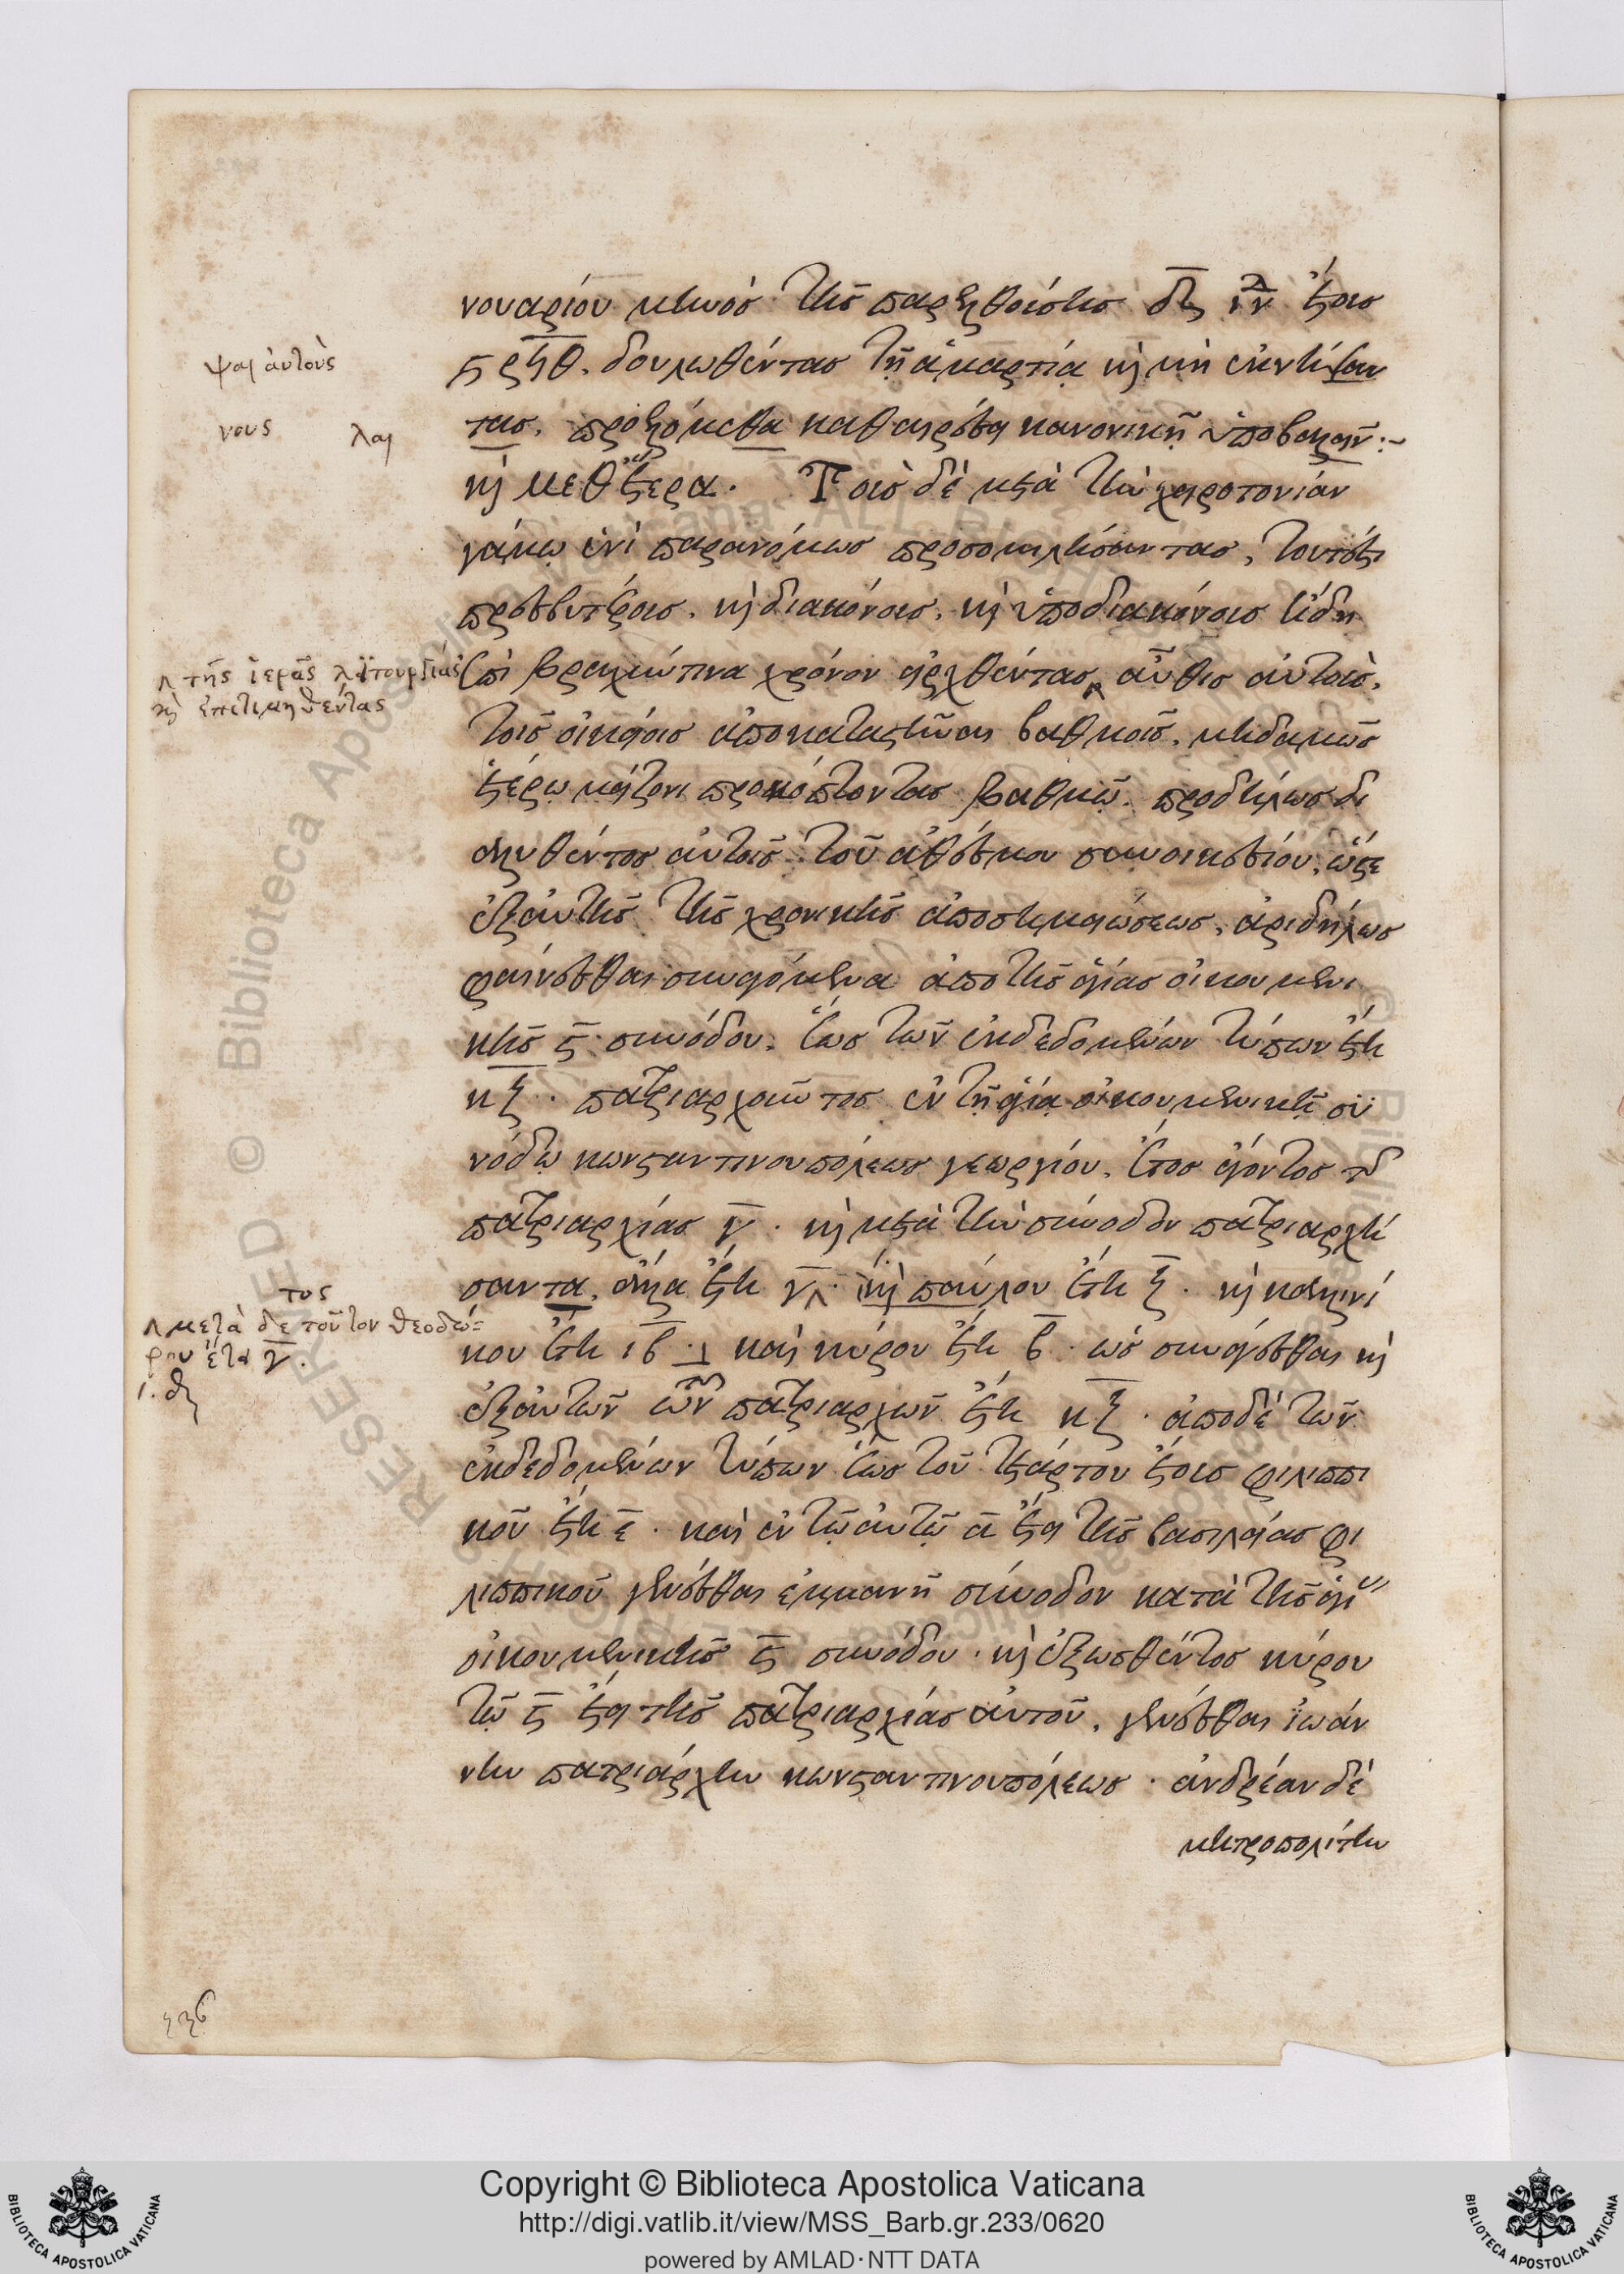 νουαρίου μηνὸς τῆς παρελθούσης δʹ ἰνδ ἔτους
ϛρϟθ. δουλωθέντας τῇ ἁμαρτίᾳ καὶ μὴ ἐκνήψαν
τας. προειλόμεθα καθαιρέσει κανονικῇ ὑποβαλεῖν:~
καὶ μεθ' ἕτερα. Τοὺς δὲ μετὰ τὴν χειροτονίαν
γάμῳ ἑνὶ παρανόμως προσομιλήσαντας, τουτέστι
πρεσβυτέρους. καὶ διακόνους. καὶ ὑποδιακόνους ἤδη
ἐπὶ βραχύν τινα χρόνον εἰρχθέντας αὖθις αὐτοὺς,
τοῖς οἰκείοις ἀποκαταστῆναι βαθμοῖς. μηδαμῶς
ἑτέρῳ μείζονι προκόπτοντας βαθμῷ. προδήλως δι
αλυθέντος αὐτοῖς τοῦ ἀθέσμου συνοικεσίου, ὥστε
ἐξ αὐτῆς τῆς χρονικῆς ἀποσημειώσεως, ἀριδήλως
φαίνεσθαι συναγόμενα ἀπὸ τῆς ἁγίας οἰκουμενι
κῆς ϛ συνόδου. ἕως τῶν ἐκδεδομένων τύπων ἔτη
κζ. πατριαρχοῦντος ἐν τῇ ἁγίᾳ οἰκουμενικῇ συ
νόδῳ κωνσταντινουπόλεως γεωργίου. ἔτος ἄγοντος τῆς
πατριαρχίας γ. καὶ μετὰ τὴν σύνοδον πατριαρχή
σαντα. ἄλλα ἔτη γ. καὶ παύλου ἔτη ζ. καὶ καλλινί
κου ἔτη ιβ. καὶ κύρου ἔτη β. ὡς συνάγεσθαι καὶ
ἐξ αὐτῶν τῶν πατριαρχῶν ἔτη κζ. ἀπὸ δὲ τῶν
ἐκδεδομένων τύπων ἕως τοῦ τετάρτου ἔτους φιλιππι
κοῦ ἔτη ε. καὶ ἐν τῷ αὐτῷ α ἔτει τῆς βασιλείας φι
λιππικοῦ γενέσθαι ἐκμανῆ σύνοδον κατὰ τῆς ἁγίας
οἰκουμενικῆς ϛ συνόδου. καὶ ἐξωσθέντος κύρου
τῷ ϛ ἔτει τῆς πατριαρχίας αὐτοῦ. γενέσθαι ἰωάν
νην πατριάρχην κωνσταντινουπόλεως. ἀνδρέαν δὲ
μητροπολίτην
ψαι αὐτοὺς
νους λαι
τῆς ἱερᾶς λειτουργίας
καὶ ἐπιτιμηθέντας
τος
μετὰ δὲ τοῦτον θεοδώ=
ρου ἔτα γ.